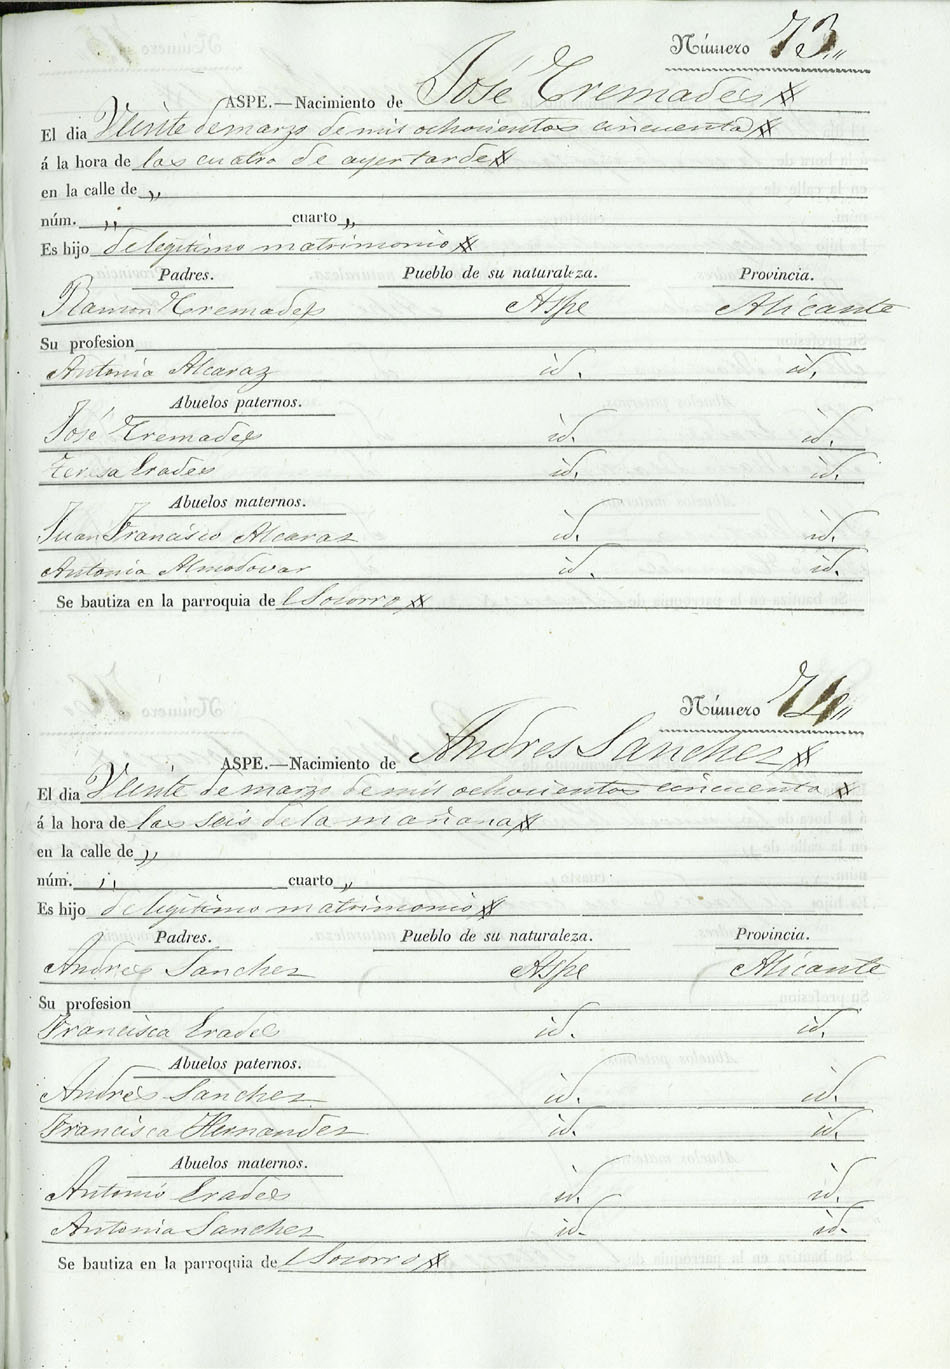 Número 73,,
ASPE.—Nacimiento de José Cremades
El dia Veinte de marzo de mil ochocientos cincuenta
á la hora de las cuatro de ayer tarde
en la calle de ,,
núm. ,, cuarto ,,
Es hijo de legitimo matrimonio
Padres. Pueblo de su naturaleza. Provincia.
Ramon Cremades Aspe Alicante
Su profesion
Antonia Alcaraz id. id.
Abuelos paternos.
José Cremades id. id.
Teresa Erades id. id.
Abuelos maternos.
Juan Francisco Alcaraz id. id.
Antonia Almodovar id. id.
Se bautiza en la parroquia de l Socorro
Número 74,,
ASPE.—Nacimiento de Andres Sanchez
El dia Veinte de marzo de mil ochocientos cincuenta
á la hora de las seis de la mañana
en la calle de ,,
núm. ,, cuarto ,,
Es hijo de legitimo matrimonio
Padres. Pueblo de su naturaleza. Provincia.
Andres Sanchez Aspe Alicante
Su profesion
Francisca Erades id. id.
Abuelos paternos.
Andrés Sanchez id. id.
Francisca Hernandez id. id.
Abuelos maternos.
Antonio Erades id. id.
Antonia Sanchez id. id.
Se bautiza en la parroquia de l Socorro